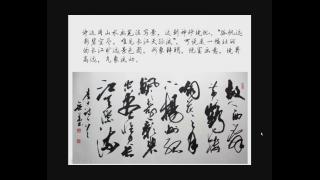 用山水画笔法写景，达到神妙境地，“孤帆远
影碧空尽，唯见长江天际流”，可说是一幅壮丽
的长江旷远景色图。形象鲜明，饱富画意，境界
高远，气象流动。
故人西辞
黄鹤楼
烟花三月
下扬州孤
帆远影碧
空尽唯见长
江天际流
李白诗